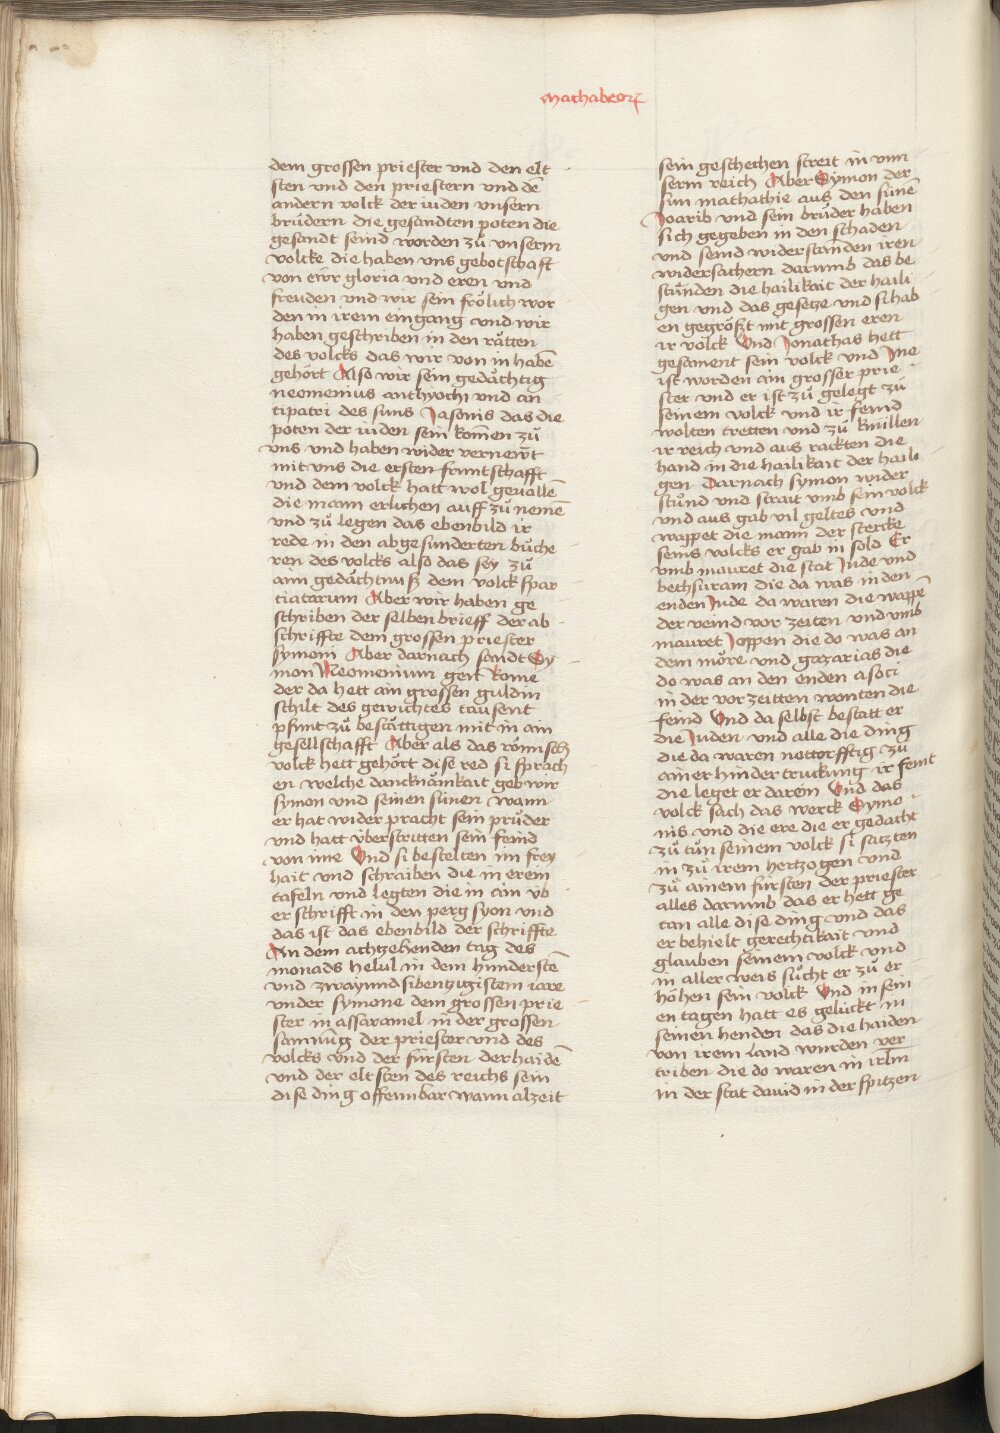 machabeorꝝ
dem grossen priester vnd den elt
sten vnd den priestern vnd dē
andern volck der iuden vnsern
brůdern die gesandten poten die
gesandt seind worden zů vnserm
volcke die haben vns gebotschaft
von ewr gloria vnd eren vnd
freuden vnd wir sein frölich wor
den in irem eingang vnd wir
haben geschriben in den råtten
des volcks das wir von in habē
gehört Also wir sein gedåchtig
neomenius anthyochi vnd an
tipatri des suns Jasonis das die
poten der iuden sein kom̄en zů
vns vnd haben wider vernew̄t
mit vns die ersten fruntschafft
vnd dem volck hatt wol geuallē
die mann erlichen auff zů nemē
vnd zů legen das ebenbild ir
rede in den abgesunderten bůche
ren des volcks also das sey zů
ainn gedåchtnuß dem volck spar
tiatarum Aber wir haben ge
schriben der selben brieff der ab
schriffte dem grossen priester
symoni Aber darnach sandt Sy
mon Neomenium gen Rome
der da hett ain grossen guldin
schilt des gewichtes tausent
pfunt zů beståttigen mit in ain
gesellschafft Aber als das römisch
volck hett gehört dise red si sprach
en welche dancknåmkait geb wir
symon vnd seinen sünen wann
er hat wider pracht sein průder
vnd hatt überstritten sein feind
von ime Vnd si bestelten im frey
hait vnd schraiben die in erein
tafeln vnd legten die in ain üb
er schrifft in den perg syon vnd
das ist das ebenbild der schriffte
An dem achtzehenden tag des
monads helul in dem hunderstē
vnd zwayundsibenzigistem iare
vnder symone dem grossen prie
ster in assaramel in der grossen
samnūg der priester vnd des
volcks vnd der fürsten der haidē
vnd der eltsten des reichs sein
dise ding offennbar wann alzeit
sein geschechen streit in vnn
serm reich Aber Symon der
sun mathathie aus den sünē
Joarib vnd sein brůder haben
sich gegeben in den schaden
vnd seind widerstanden iren
widersachern darumb das be
stůnden die hailikait der haili
gen vnd das gesetze vnd si hab
en gegrößt mit grossen eren
ir volck Vnd Jonathas hett
gesament sein volck vnd Jme
ist worden ain grosser prie
ster vnd er ist zů gelegt zů
seinem volck vnd ir feind
wolten tretten vnd zů knüllen
ir reich vnd aus rackten die
hand in die hailikait der haili
gen Darnach symon wider
stůnd vnd strait vmb sein volck
vnd aus gab vil geltes vnd
wappet die mann der stercke
seins volcks er gab in sold Er
vmb mauret die stat Jude vnd
bethsuram die da was in den
enden Jude da waren die wappē
der veind vor zeiten vnd vmb
mauret Joppen die do was an
dem möre vnd gazarias die
do was an den enden asoti
in der vor zeitten wonten die
feind Vnd da selbst bestatt er
die Juden vnd alle die ding
die da waren nottorfftig zů
ainer hinder truckung ir feint
die leget er darein Vnd das
volck sach das werck Symo
nis vnd die ere die er gedacht
zů tůn seinem volck si satzten
in zů irem hertzogen vnd
zů ainem fürsten der priester
alles darumb das er hett ge
tan alle dise ding vnd das
er behielt gerechtikait vnd
glauben seinem volck vnd
in aller weis sůcht er zů er
höhen sein volck Vnd in sein
en tagen hatt es gelückt in
seinen henden das die haiden
von irem land wurden ver
triben die do waren in irl̄m
in der stat dauid in der spitzen